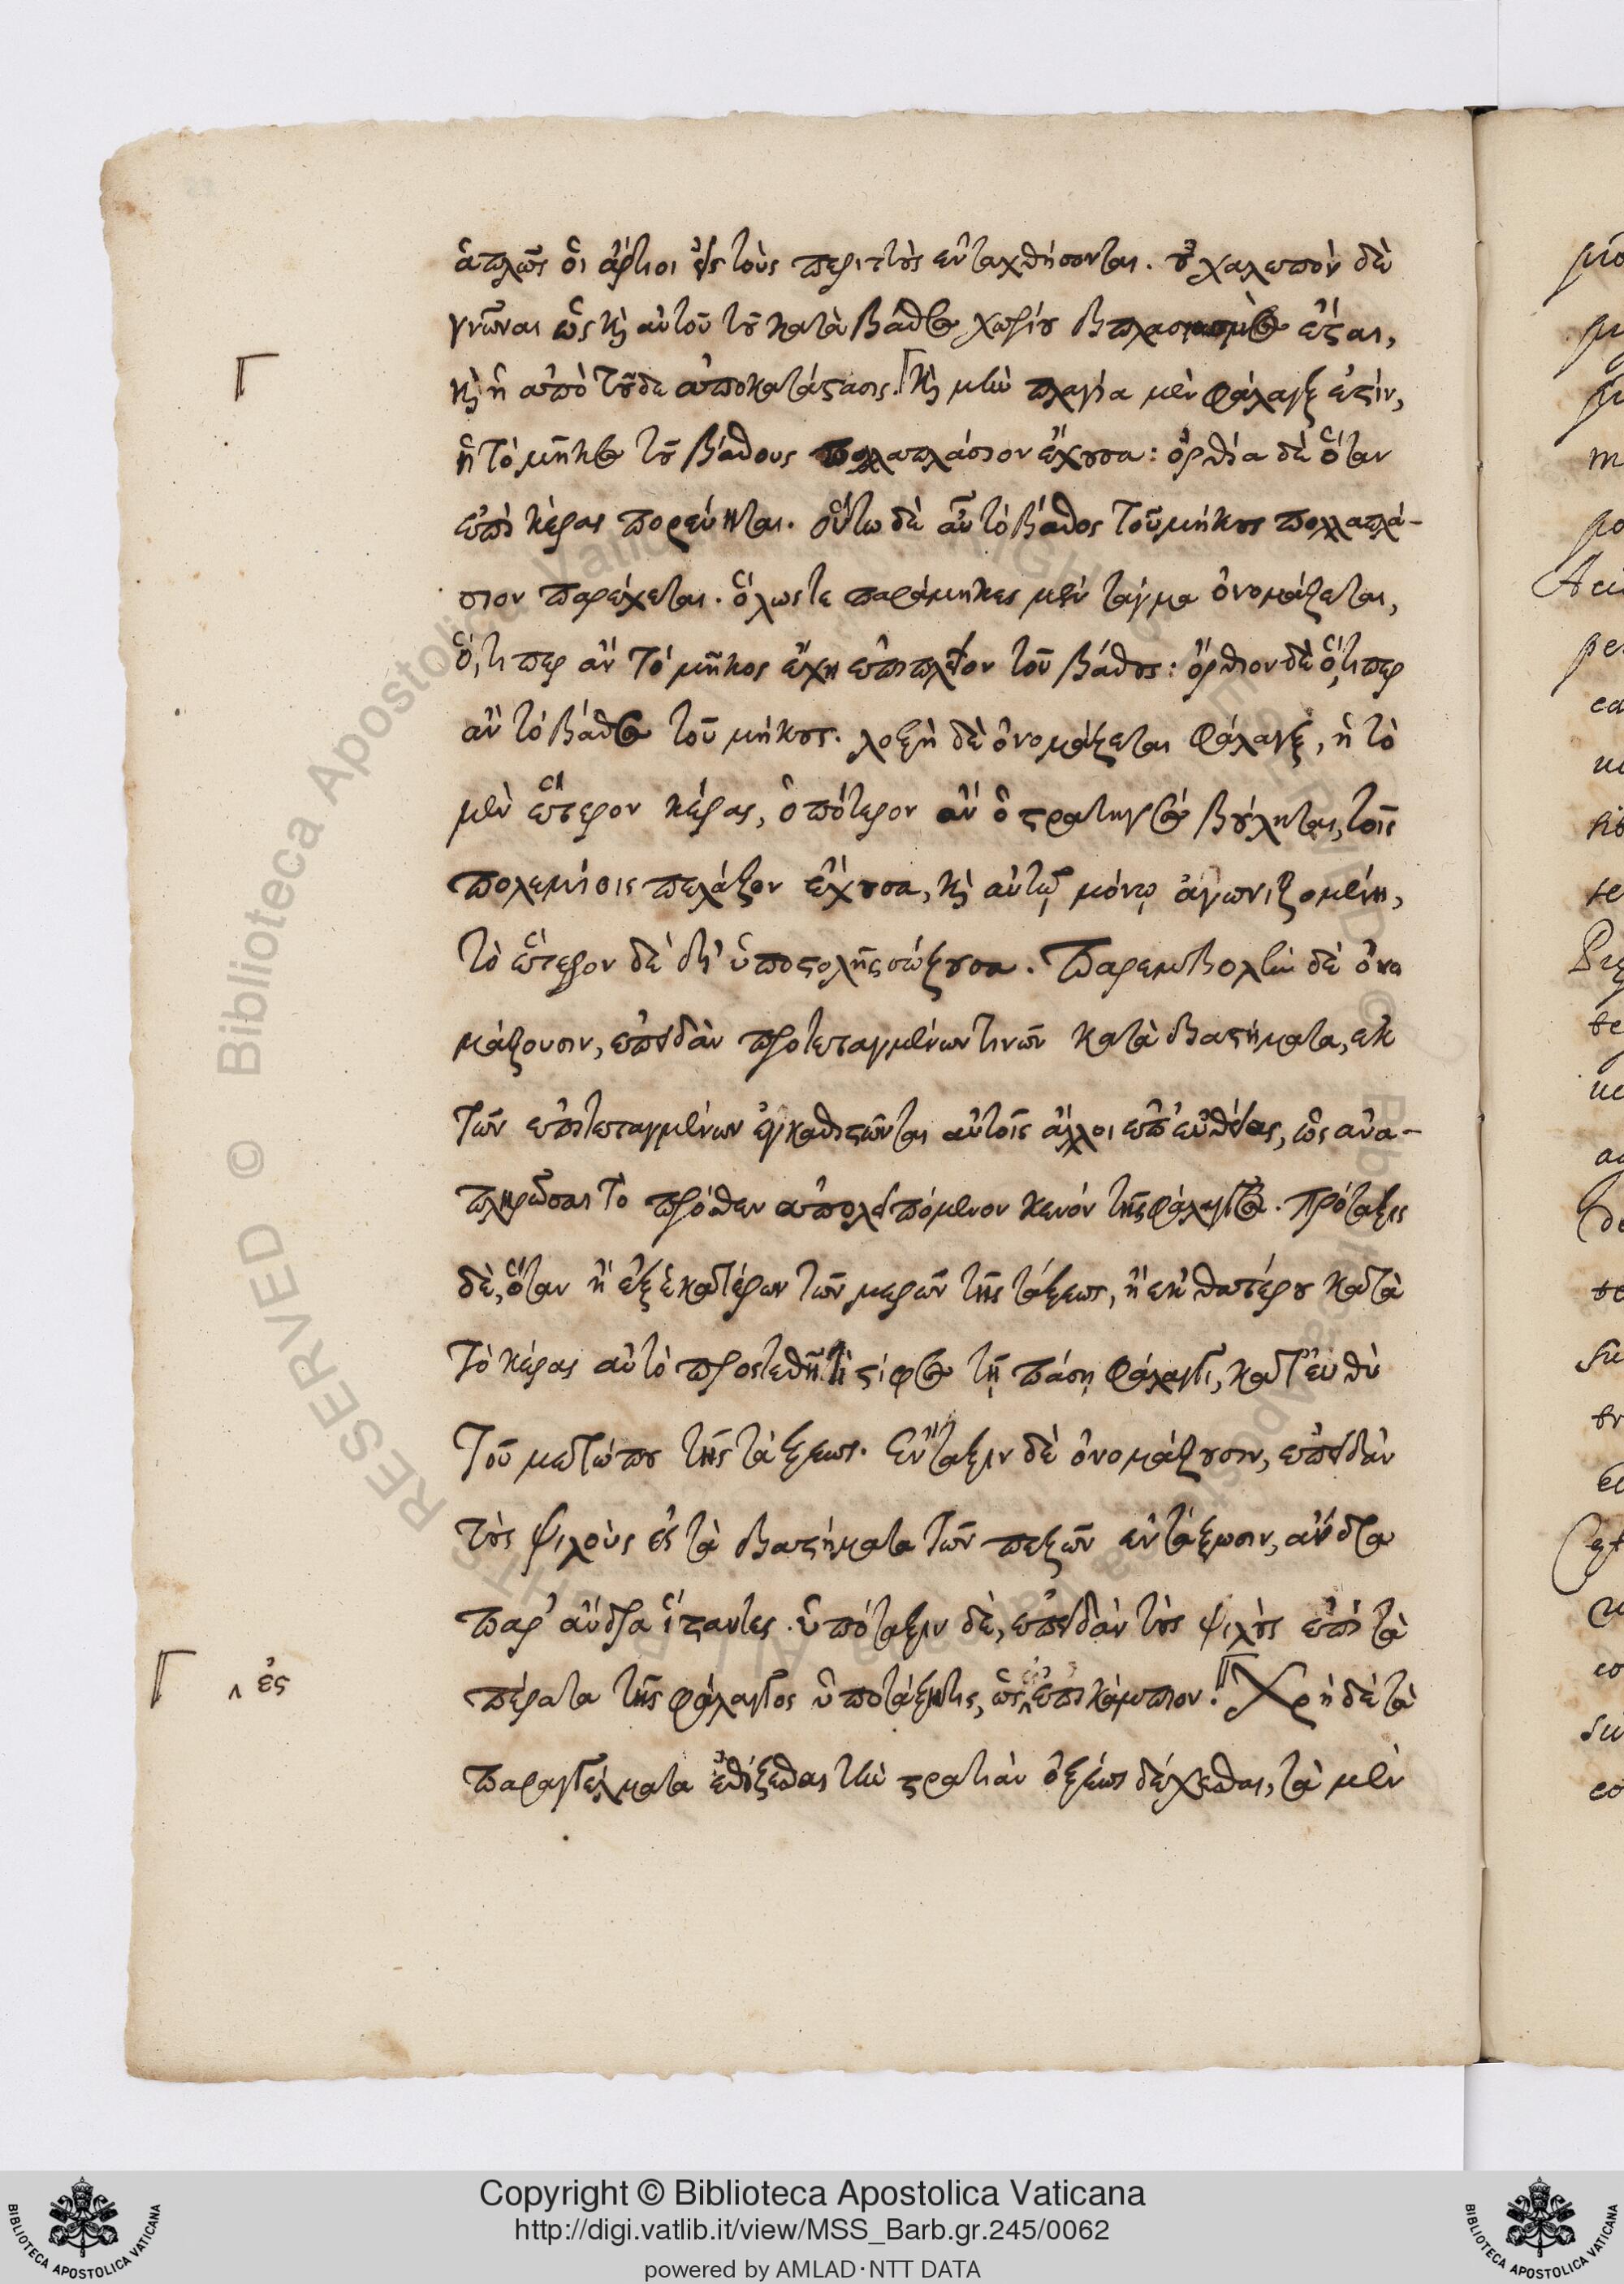 ἁπλῶς ὅι ἄρτιοι εἰς τοὺς περιττοὺς ἐνταχθήσονται. οὐ χαλεπὸν δὲ
γνῶναι ὡς καὶ αὐτοῦ τοῦ κατὰ βάθος χωρίου διπλασιασμὸς ἔσται,
καὶ ἡ ἀπὸ τοῦδε ἀποκατάστασις. Καὶ μὴν πλαγία μὲν φάλαγξ ἐστίν,
ἡ τὸ μῆκος τοῦ βάθους πολλαπλάσιον ἔχουσα: ὀρθία δὲ ὅταν
ἐπὶ κέρας πορεύηται. οὕτω δὲ αὖ τὸ βάθος τοῦ μήκους πολλαπλά-
σιον παρέχεται. ὅλως τε παράμηκες μὲν τάγμα ὀνομάζεται,
ὅ,τι περ ἂν τὸ μῆκος ἔχῃ ἐπιπλεῖον τοῦ βάθους: ὄρθιον δὲ ὅ,τι περ
ἂν τὸ βάθος τοῦ μήκους. λοξὴ δὲ ὀνομάζεται φάλαγξ, ἡ τὸ
μὲν ἕτερον κέρας, ὁπότερον ἂν ὁ στρατηγὸς βούληται, τοῖς
πολεμίοις πελάζον ἔχουσα, καὶ αὐτῷ μόνῳ ἀγωνιζομένη,
τὸ ἕτερον δὲ δι' ὑποστολῆς σώζουσα. Παρεμβολὴν δὲ ὀνο
μάζουσιν, ἐπειδὰν προτεταγμένων τινῶν κατὰ διαστήματα, ἐκ
τῶν ἐπιτεταγμένων ἐγκαθιστῶνται αὐτοῖς ἄλλοι ἐπ' εὐθείας, ὡς ἀνα-
πληρῶσαι τὸ πρόσθεν ἀπολειπόμενον κενὸν τῆς φάλαγγος. Πρόταξις
δὲ, ὅταν ἢ ἐξ ἑκατέρων τῶν μερῶν τῆς τάξεως, ἢ ἐκ θατέρου κατὰ
τὸ κέρας αὐτὸ προστεθῇ τι στίφος τῇ πάσῃ φάλαγγι, κατ' εὐθὺ
τοῦ μετώπου τῆς τάξεως. Ἔνταξιν δὲ ὀνομάζουσιν, ἐπειδὰν
τοὺς ψιλοὺς ἐς τὰ διαστήματα τῶν πεζῶν ἐντάξωσιν, ἄνδρα
παρ' ἄνδρα ἱστάντες. ὑπόταξιν δὲ, ἐπειδὰν τοὺς ψιλοὺς ἐπὶ τὰ
πέρατα τῆς φάλαγγος ὑποτάξῃ τις, ὡς ἐς ἐπικάμπιον. Χρὴ δὲ τὰ
ἐς
παραγγέλματα ἐθίζεσθαι τὴν στρατιὰν ὀξέως δέχεσθαι, τὰ μὲν
Copyright © Biblioteca Apostolica Vaticana
http://digi.vatlib.it/view/MSS_Barb.gr.245/0062
powered by AMLAD·NTT DATA